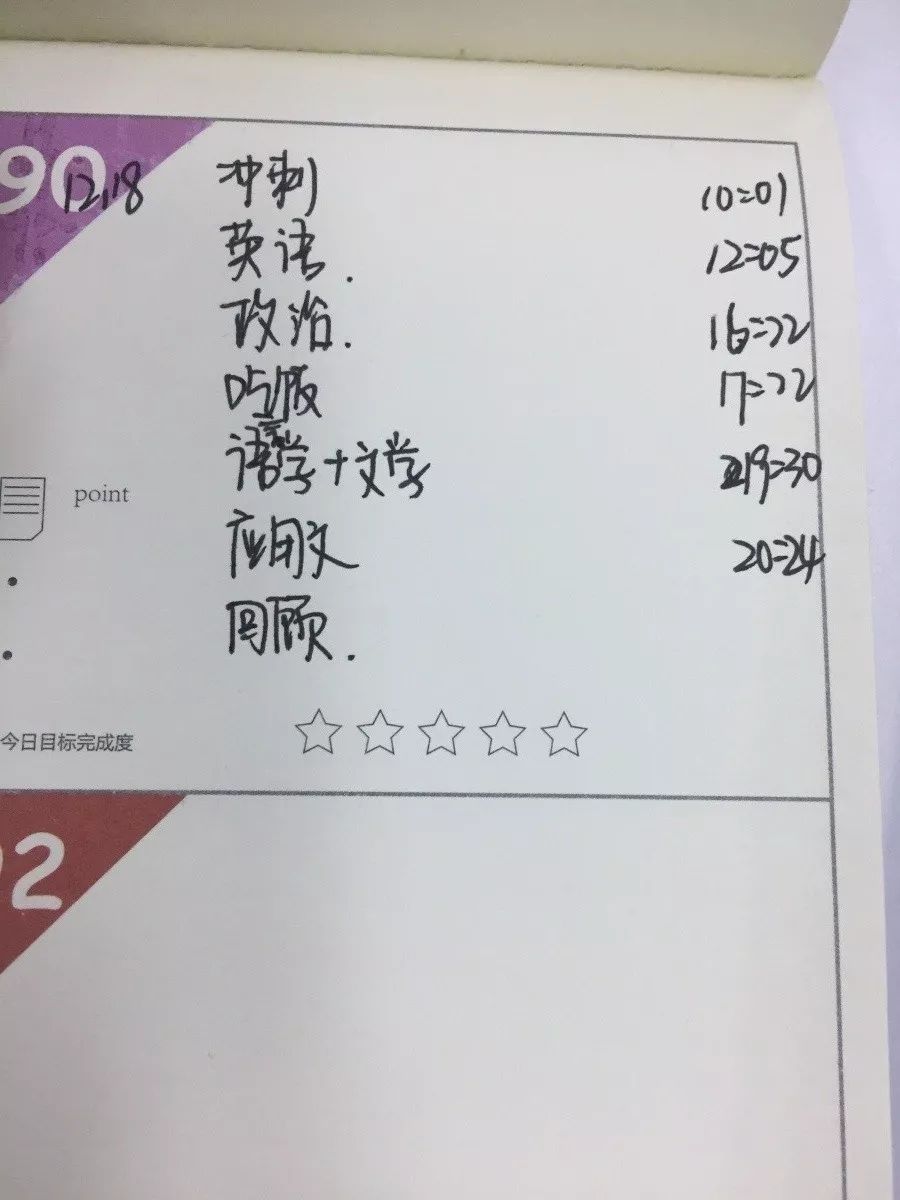 90 12.18 冲刺 10:01
英语. 12:05
政治. 16:22
吃饭 17:22
语言学+文学 19:30
point
应用文 20:24
回顾.
今日目标完成度
92